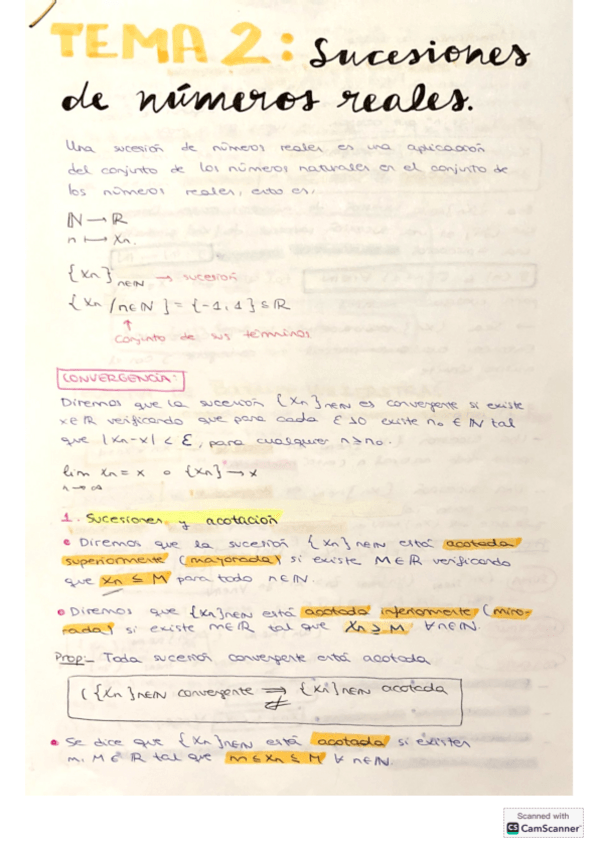 TEMA 2: Sucesiones
de números reales.
Una sucesión de números reales es una aplicación
del conjunto de los números naturales en el conjunto de
los números reales, esto es,
ℕ → ℝ
n ↦ Xn.
{Xn}n∈ℕ → sucesión
{Xn / n∈ℕ} = {-1, 1} ⊆ ℝ
↑
Conjunto de sus términos
CONVERGENCIA:
Diremos que la sucesión {Xn}n∈ℕ es convergente si existe
x∈ℝ verificando que para cada ε>0 existe n₀ ∈ ℕ tal
que |Xn-x| < ε, para cualquier n≥n₀.
lim Xn = x o {Xn} → x
n→∞
1. Sucesiones y acotación
• Diremos que la sucesión {Xn}n∈ℕ está acotada
superiormente (mayorada) si existe M∈ℝ verificando
que Xn ≤ M para todo n∈ℕ.
• Diremos que {Xn}n∈ℕ está acotada inferiormente (mino-
rada) si existe m∈ℝ tal que Xn ≥ M ∀n∈ℕ.
Prop:- Toda sucesión convergente está acotada
({Xn}n∈ℕ convergente ⇒ {Xn}n∈ℕ acotada
⇍
• Se dice que {Xn}n∈ℕ está acotada si existen
m, M ∈ ℝ tal que m ≤ Xn ≤ M ∀ n∈ℕ.
Scanned with
CS CamScanner